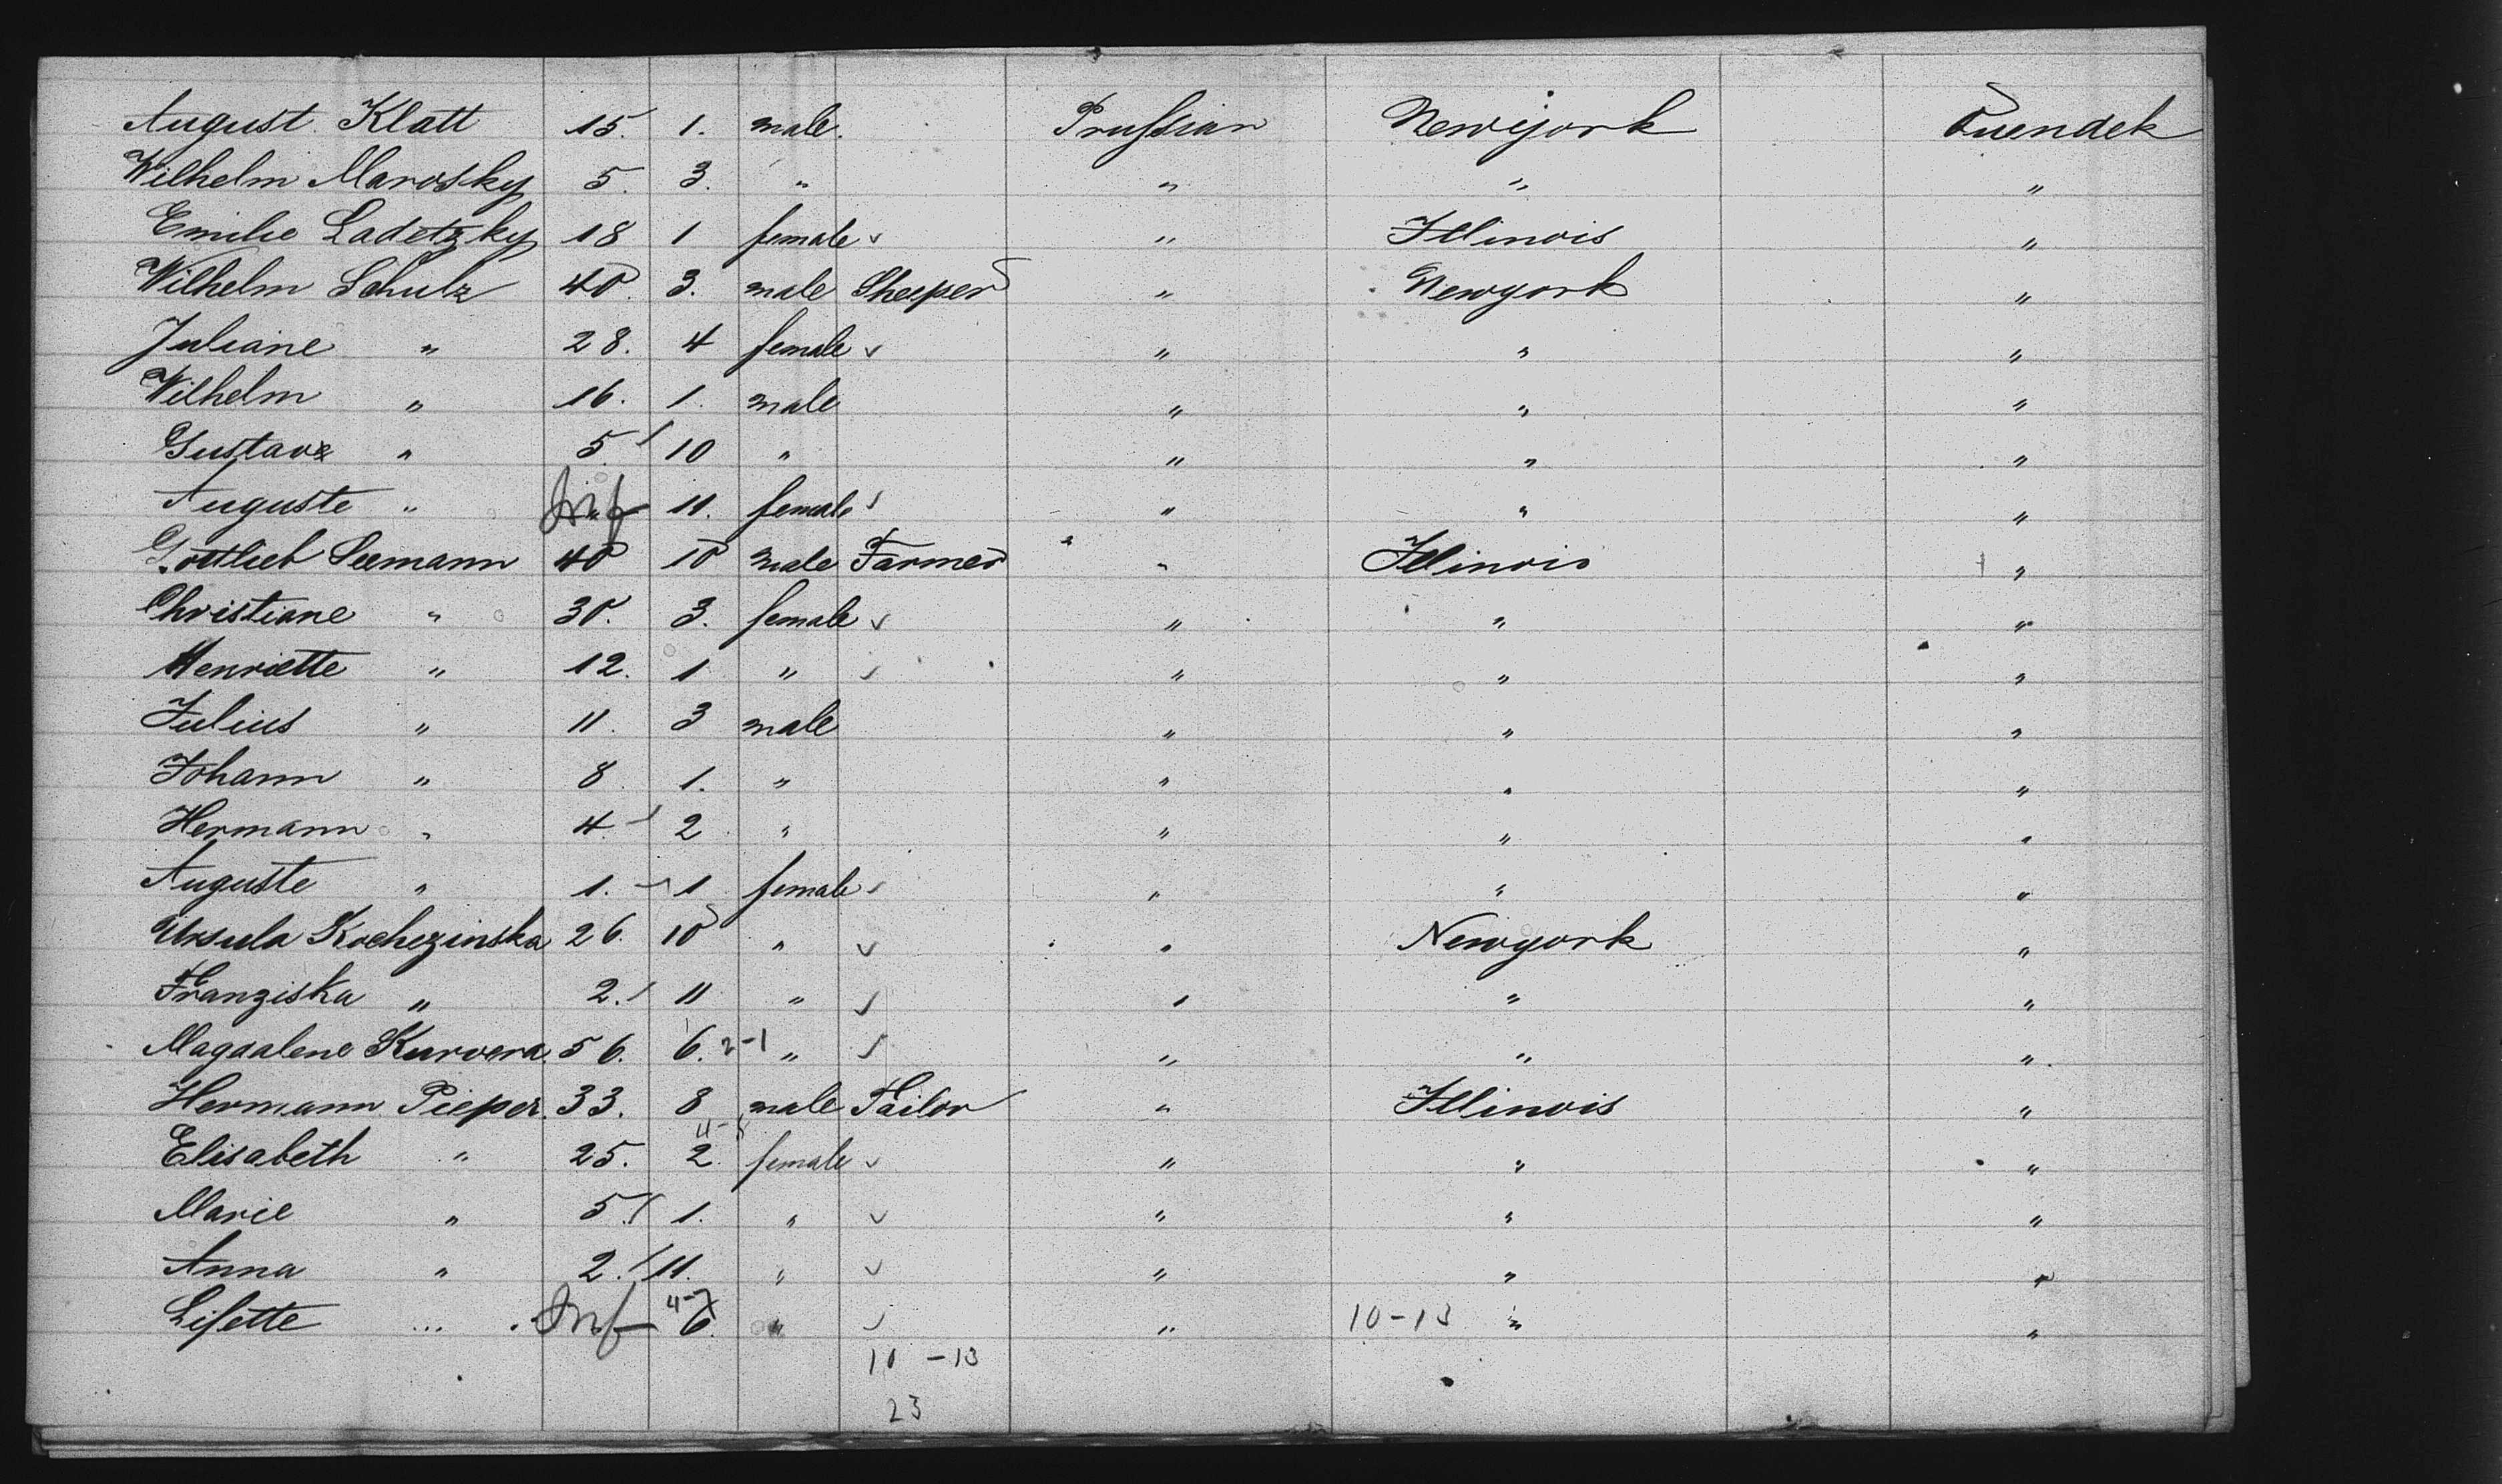 August Klatt 15. 1. male. Prussian Newyork Tuendek
Wilhelm Marosky 5. 3. " " " "
Emilie Ladetzky 18 1 female " Illinois "
Wilhelm Schulz 40. 3. male Sheeper " Newyork "
Juliane " 28. 4 female " " "
Wilhelm " 16. 1. male " " "
Gustav " 5. 10 " " " "
Auguste " Inf 11. female " " "
Gottlieb Seemann 40 10 male Farmer " Illinois "
Christiane " 30. 3. female " " "
Henriette " 12. 1 " " " "
Julius " 11. 3 male " " "
Johann " 8. 1. " " " "
Hermann " 4. 2 " " " "
Auguste " 1. 1 female " " "
Ursula Kochezinska 26. 10 " " Newyork "
Franziska " 2. 11 " " " "
Magdalene Kurvera 56. 6. 2-1 " " " "
Hermann Pieper. 33. 8 male Tailor " Illinois "
Elisabeth " 25. 2. female " " "
Marie " 5. 1. " " " "
Anna " 2. 11. " " " "
Lisette " Inf 4-7 6. " " 10-13 " "
10 -13
23